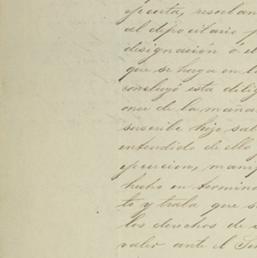 al depositario
designación ó el
que se haga en l
concluyó esta dilig
once de la maña
suscribe hijo sa
entendido de ello
ejecucion, man
hecho en termin
to y trala que s
los derechos de
valer ante el